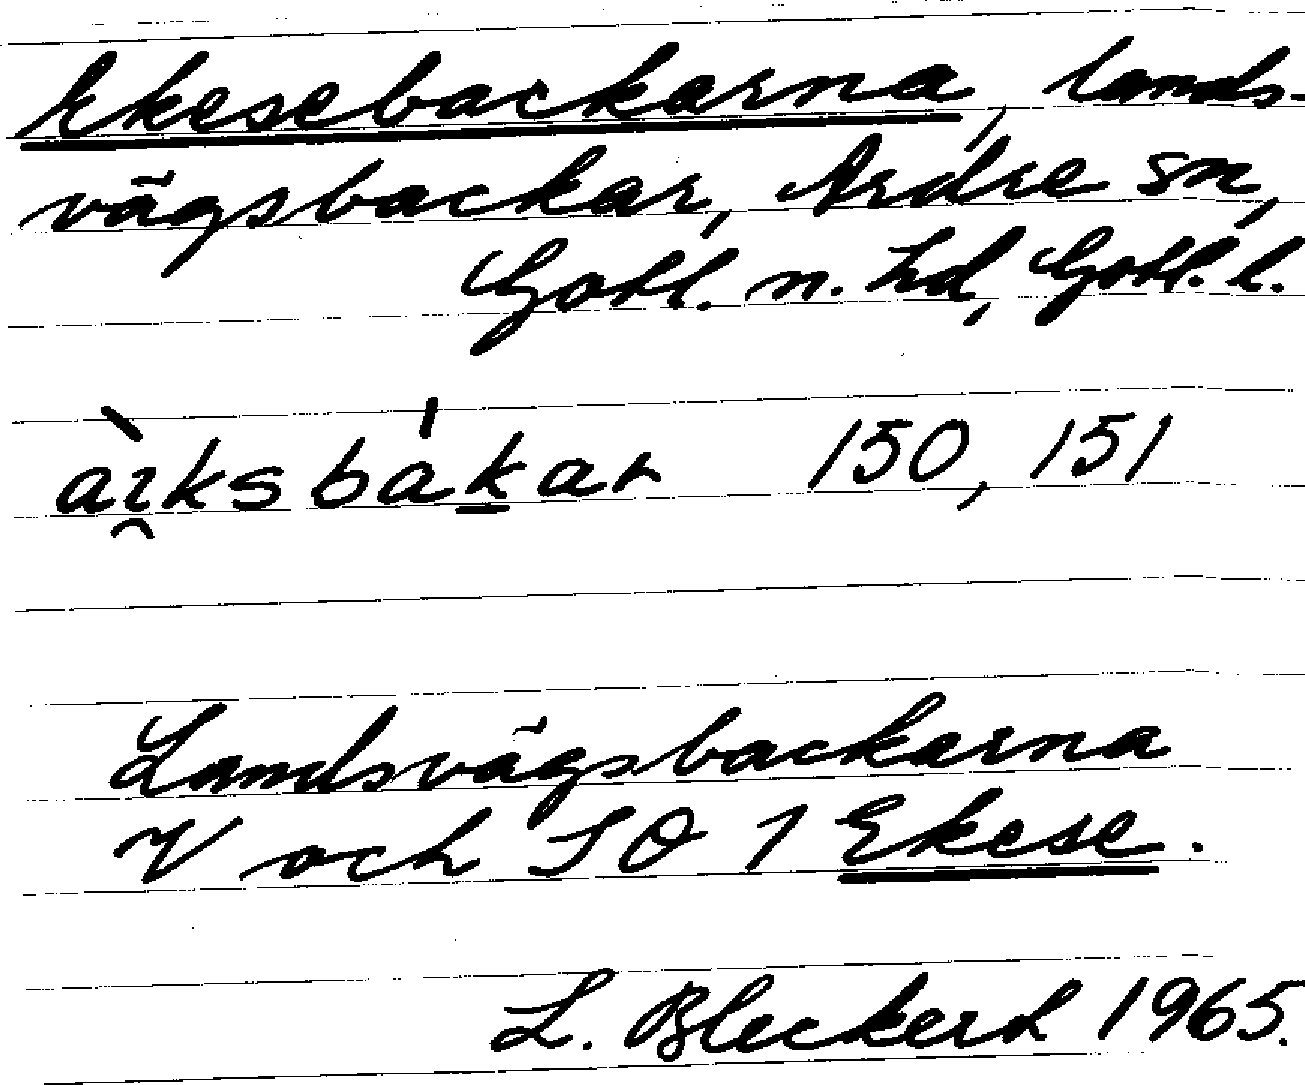 Ekesebackarna, lands-
vägsbackar, Ardre sn,
Gotl. n. hd, Gotl. l.
àɪ̯ksbákar 150, 151
Landsvägsbackarna
V och SO 1 Ekese.
L. Bleckert 1965.